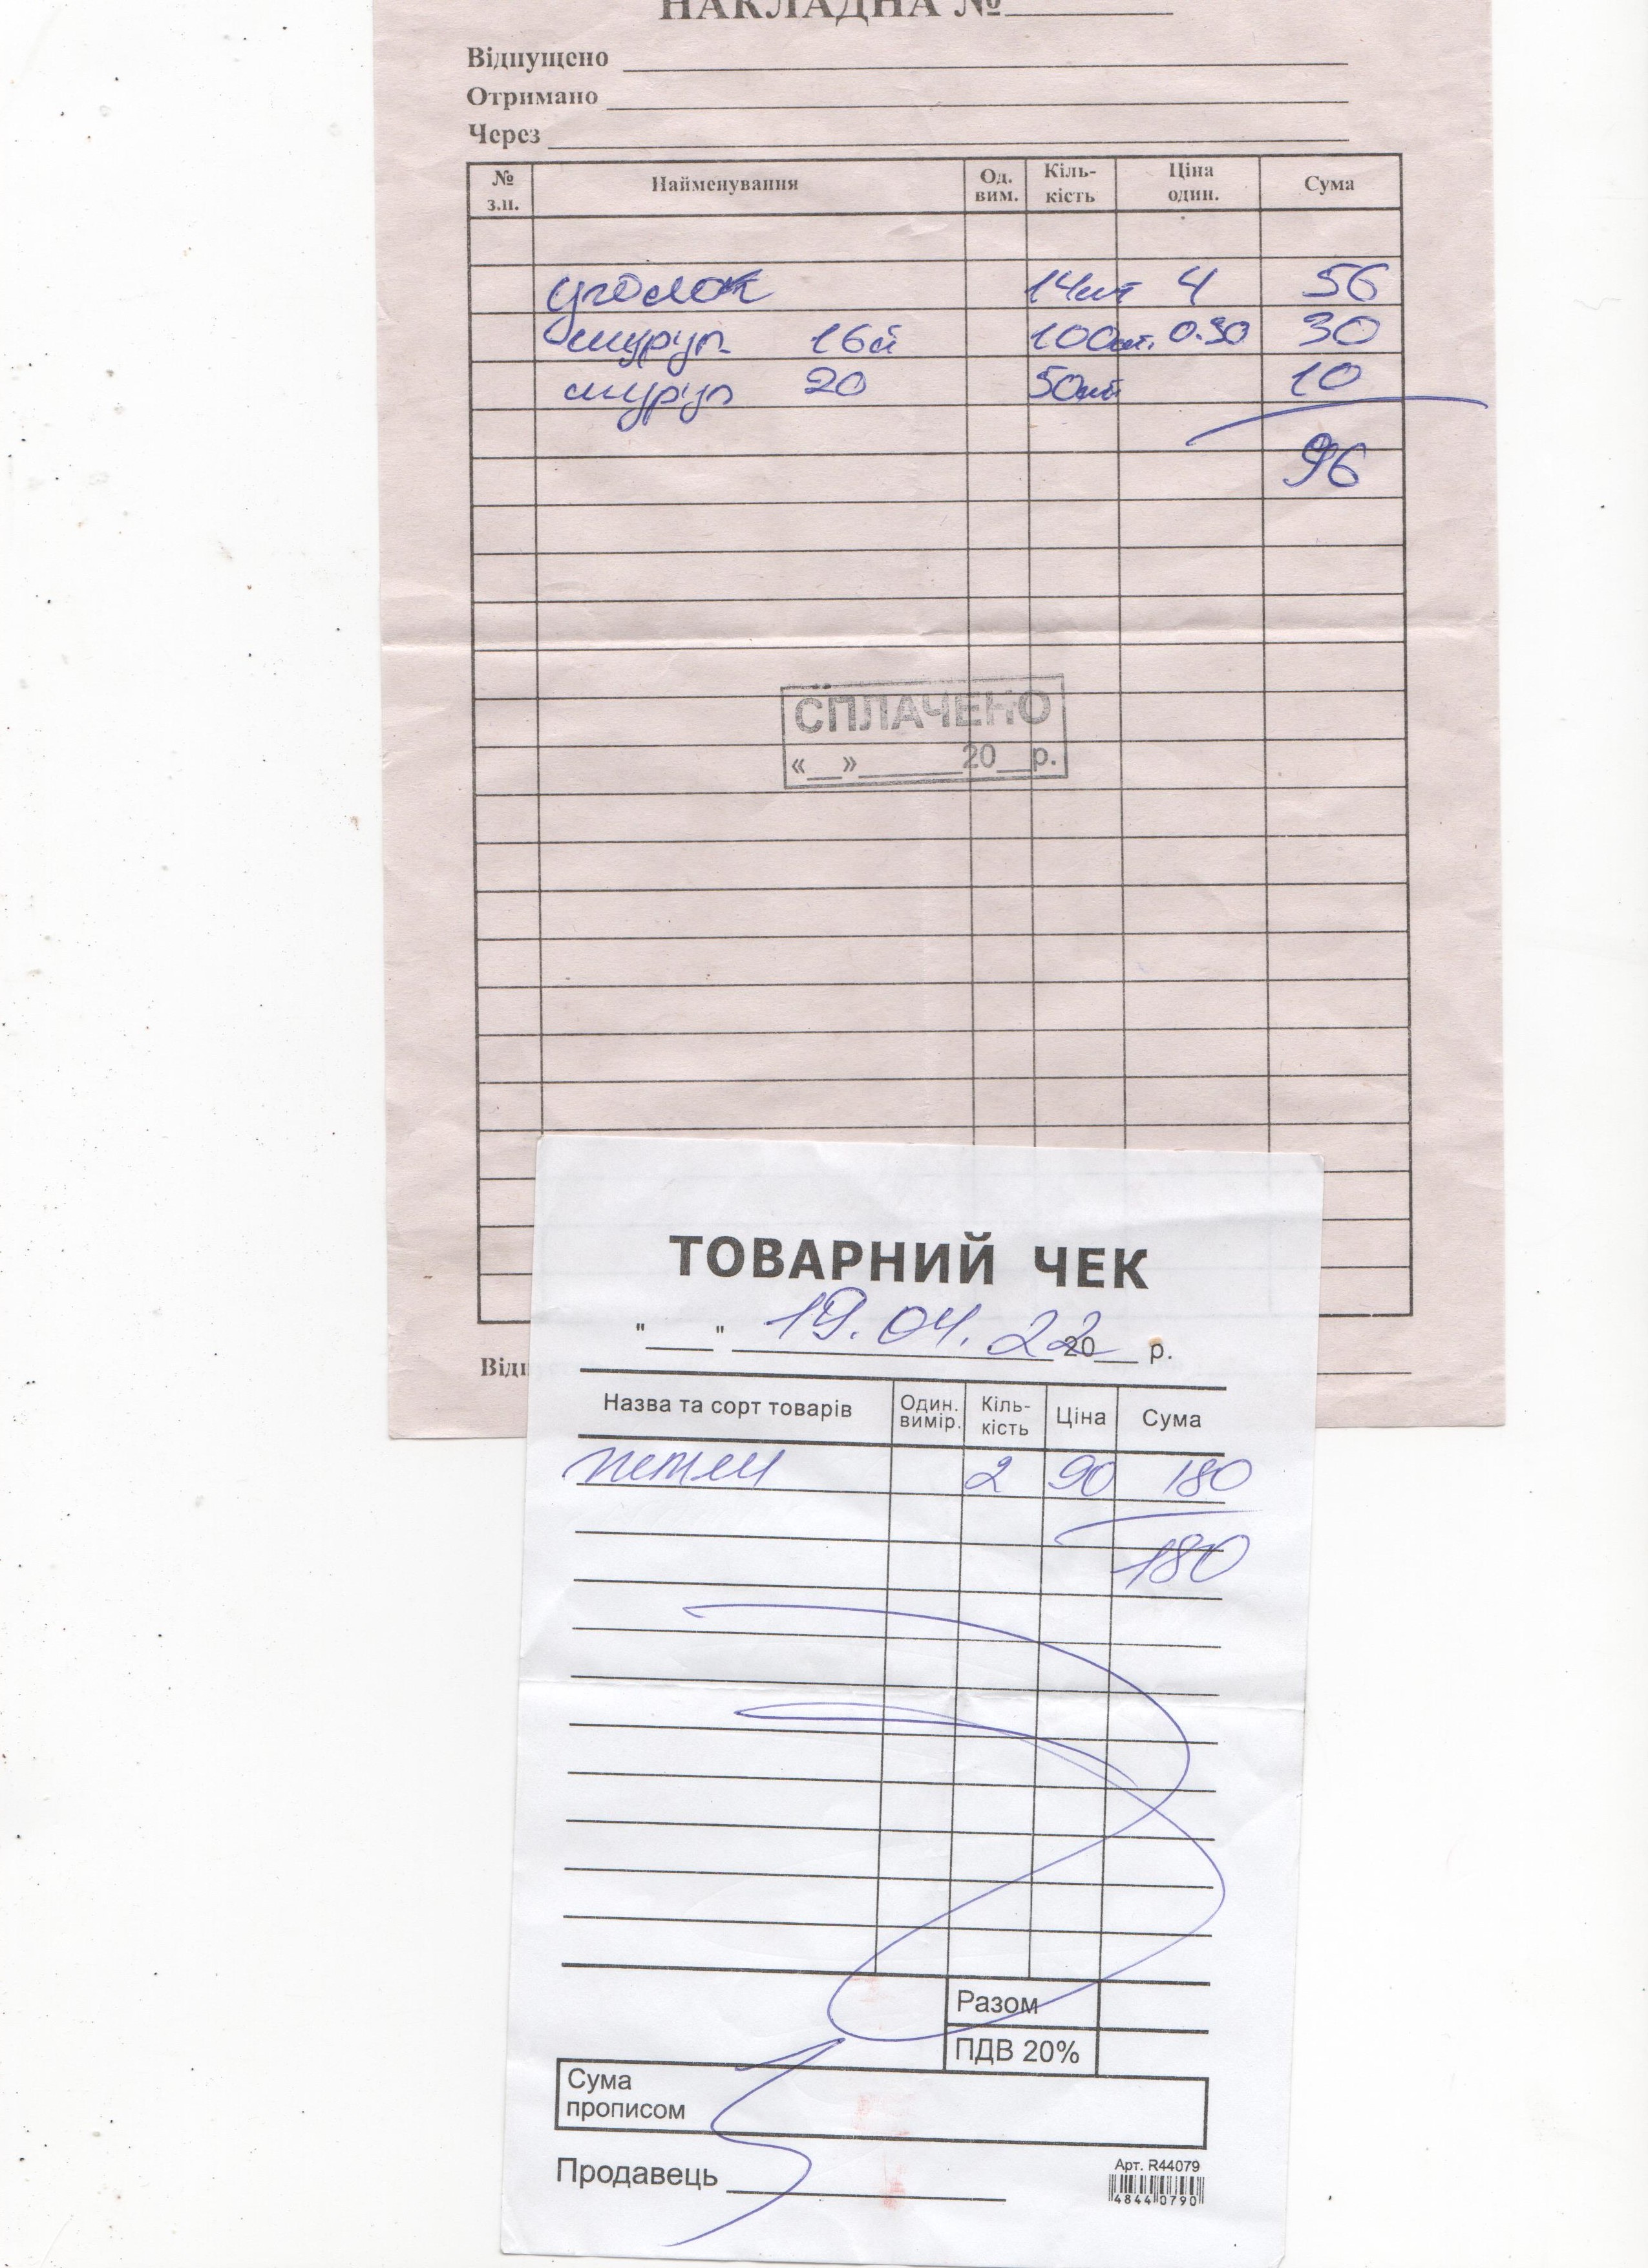 НАКЛАДНА №
Відпущено
Отримано
Через
№ з.п. Найменування Од. вим. Кіль-кість Ціна один. Сума
уголок 14шт 4 56
шуруп 16й 100шт. 0.30 30
шуруп 20 50шт 10
96
СПЛАЧЕНО
«__»______20__р.
ТОВАРНИЙ ЧЕК
"___" 19.04.22 20__ р.
Відпус
Назва та сорт товарів Один. вимір. Кіль-кість Ціна Сума
петли 2 90 180
180
Разом
ПДВ 20%
Сума
прописом
Продавець
Арт. R44079
4844 0790